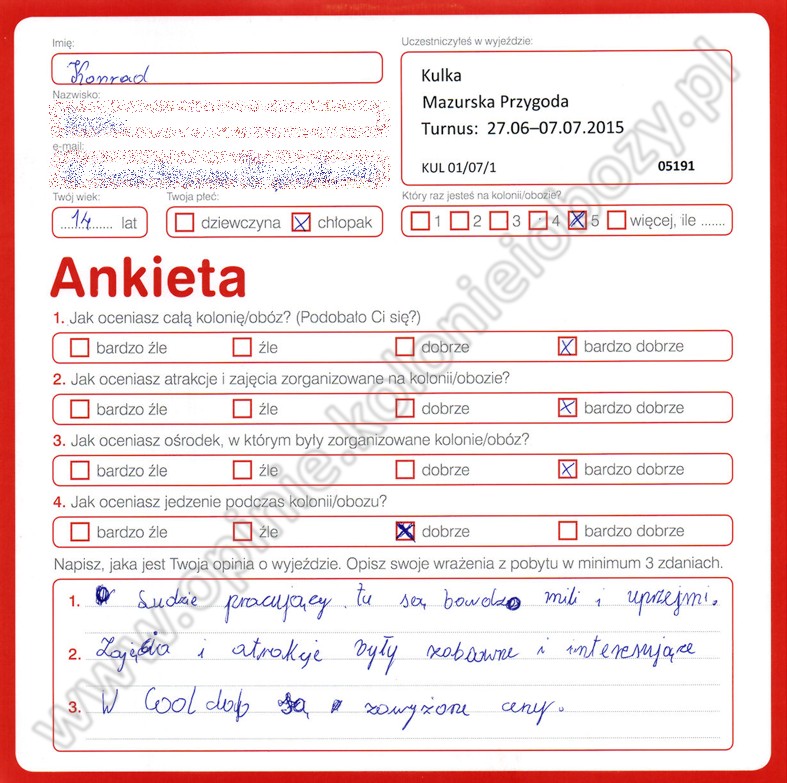 Imię:
Konrad
Nazwisko:
e-mail:
Twój wiek:
14 lat
Twoja płeć:
dziewczyna chłopak
Uczestniczyłeś w wyjeździe:
Kulka
Mazurska Przygoda
Turnus: 27.06–07.07.2015
KUL 01/07/1 05191
Który raz jesteś na kolonii/obozie?
1 2 3 4 5 więcej, ile .......
Ankieta
1. Jak oceniasz całą kolonię/obóz? (Podobało Ci się?)
bardzo źle źle dobrze bardzo dobrze
2. Jak oceniasz atrakcje i zajęcia zorganizowane na kolonii/obozie?
bardzo źle źle dobrze bardzo dobrze
3. Jak oceniasz ośrodek, w którym były zorganizowane kolonie/obóz?
bardzo źle źle dobrze bardzo dobrze
4. Jak oceniasz jedzenie podczas kolonii/obozu?
bardzo źle źle dobrze bardzo dobrze
Napisz, jaka jest Twoja opinia o wyjeździe. Opisz swoje wrażenia z pobytu w minimum 3 zdaniach.
1. Ludzie pracujący tu są bardzo mili i uprzejmi.
2. Zajęcia i atrakcje były zabawne i interesujące
3. W Cool są zawyżone ceny.
www.opinie.kolonieiobozy.pl